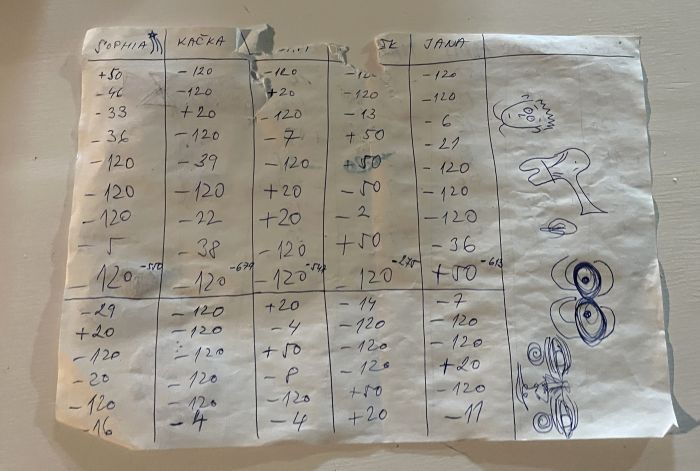 SOPHIA KAČKA JANA
+50 -120 -120 -120 -120
-46 -120 +20 -120 -120
-33 +20 -120 -13 -6
-36 -120 -7 +50 -21
-120 -39 -120 +50 -120
-120 -120 +20 -50 -120
-120 -22 +20 -2 -120
-5 -38 -120 +50 -36
-120 -550 -120 -679 -120 -547 -120 -275 +50 -613
-29 -120 +20 -14 -7
+20 -120 -4 -120 -120
-120 -120 +50 -120 -120
-20 -120 -8 -120 +20
-120 -120 -120 +50 -120
-16 -4 -4 +20 -11